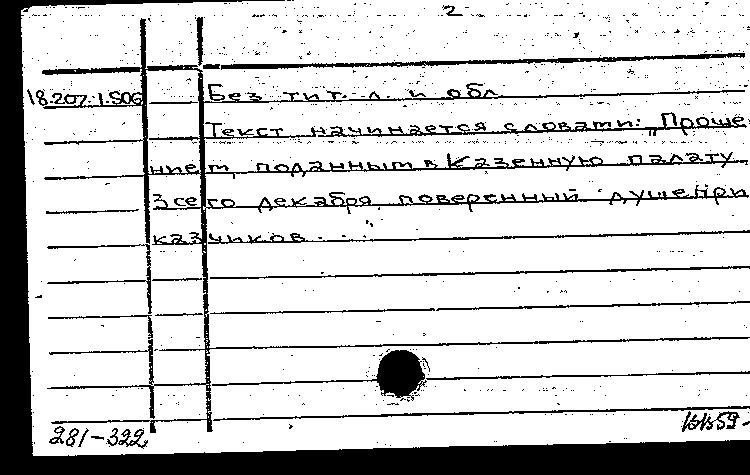 2
18.207.1.506
Без тит. л. и обл.
Текст начинается словами: „Проше
нием, поданным в Казенную палату
3 сего декабря поверенный душепри
казчиков...“
281-322